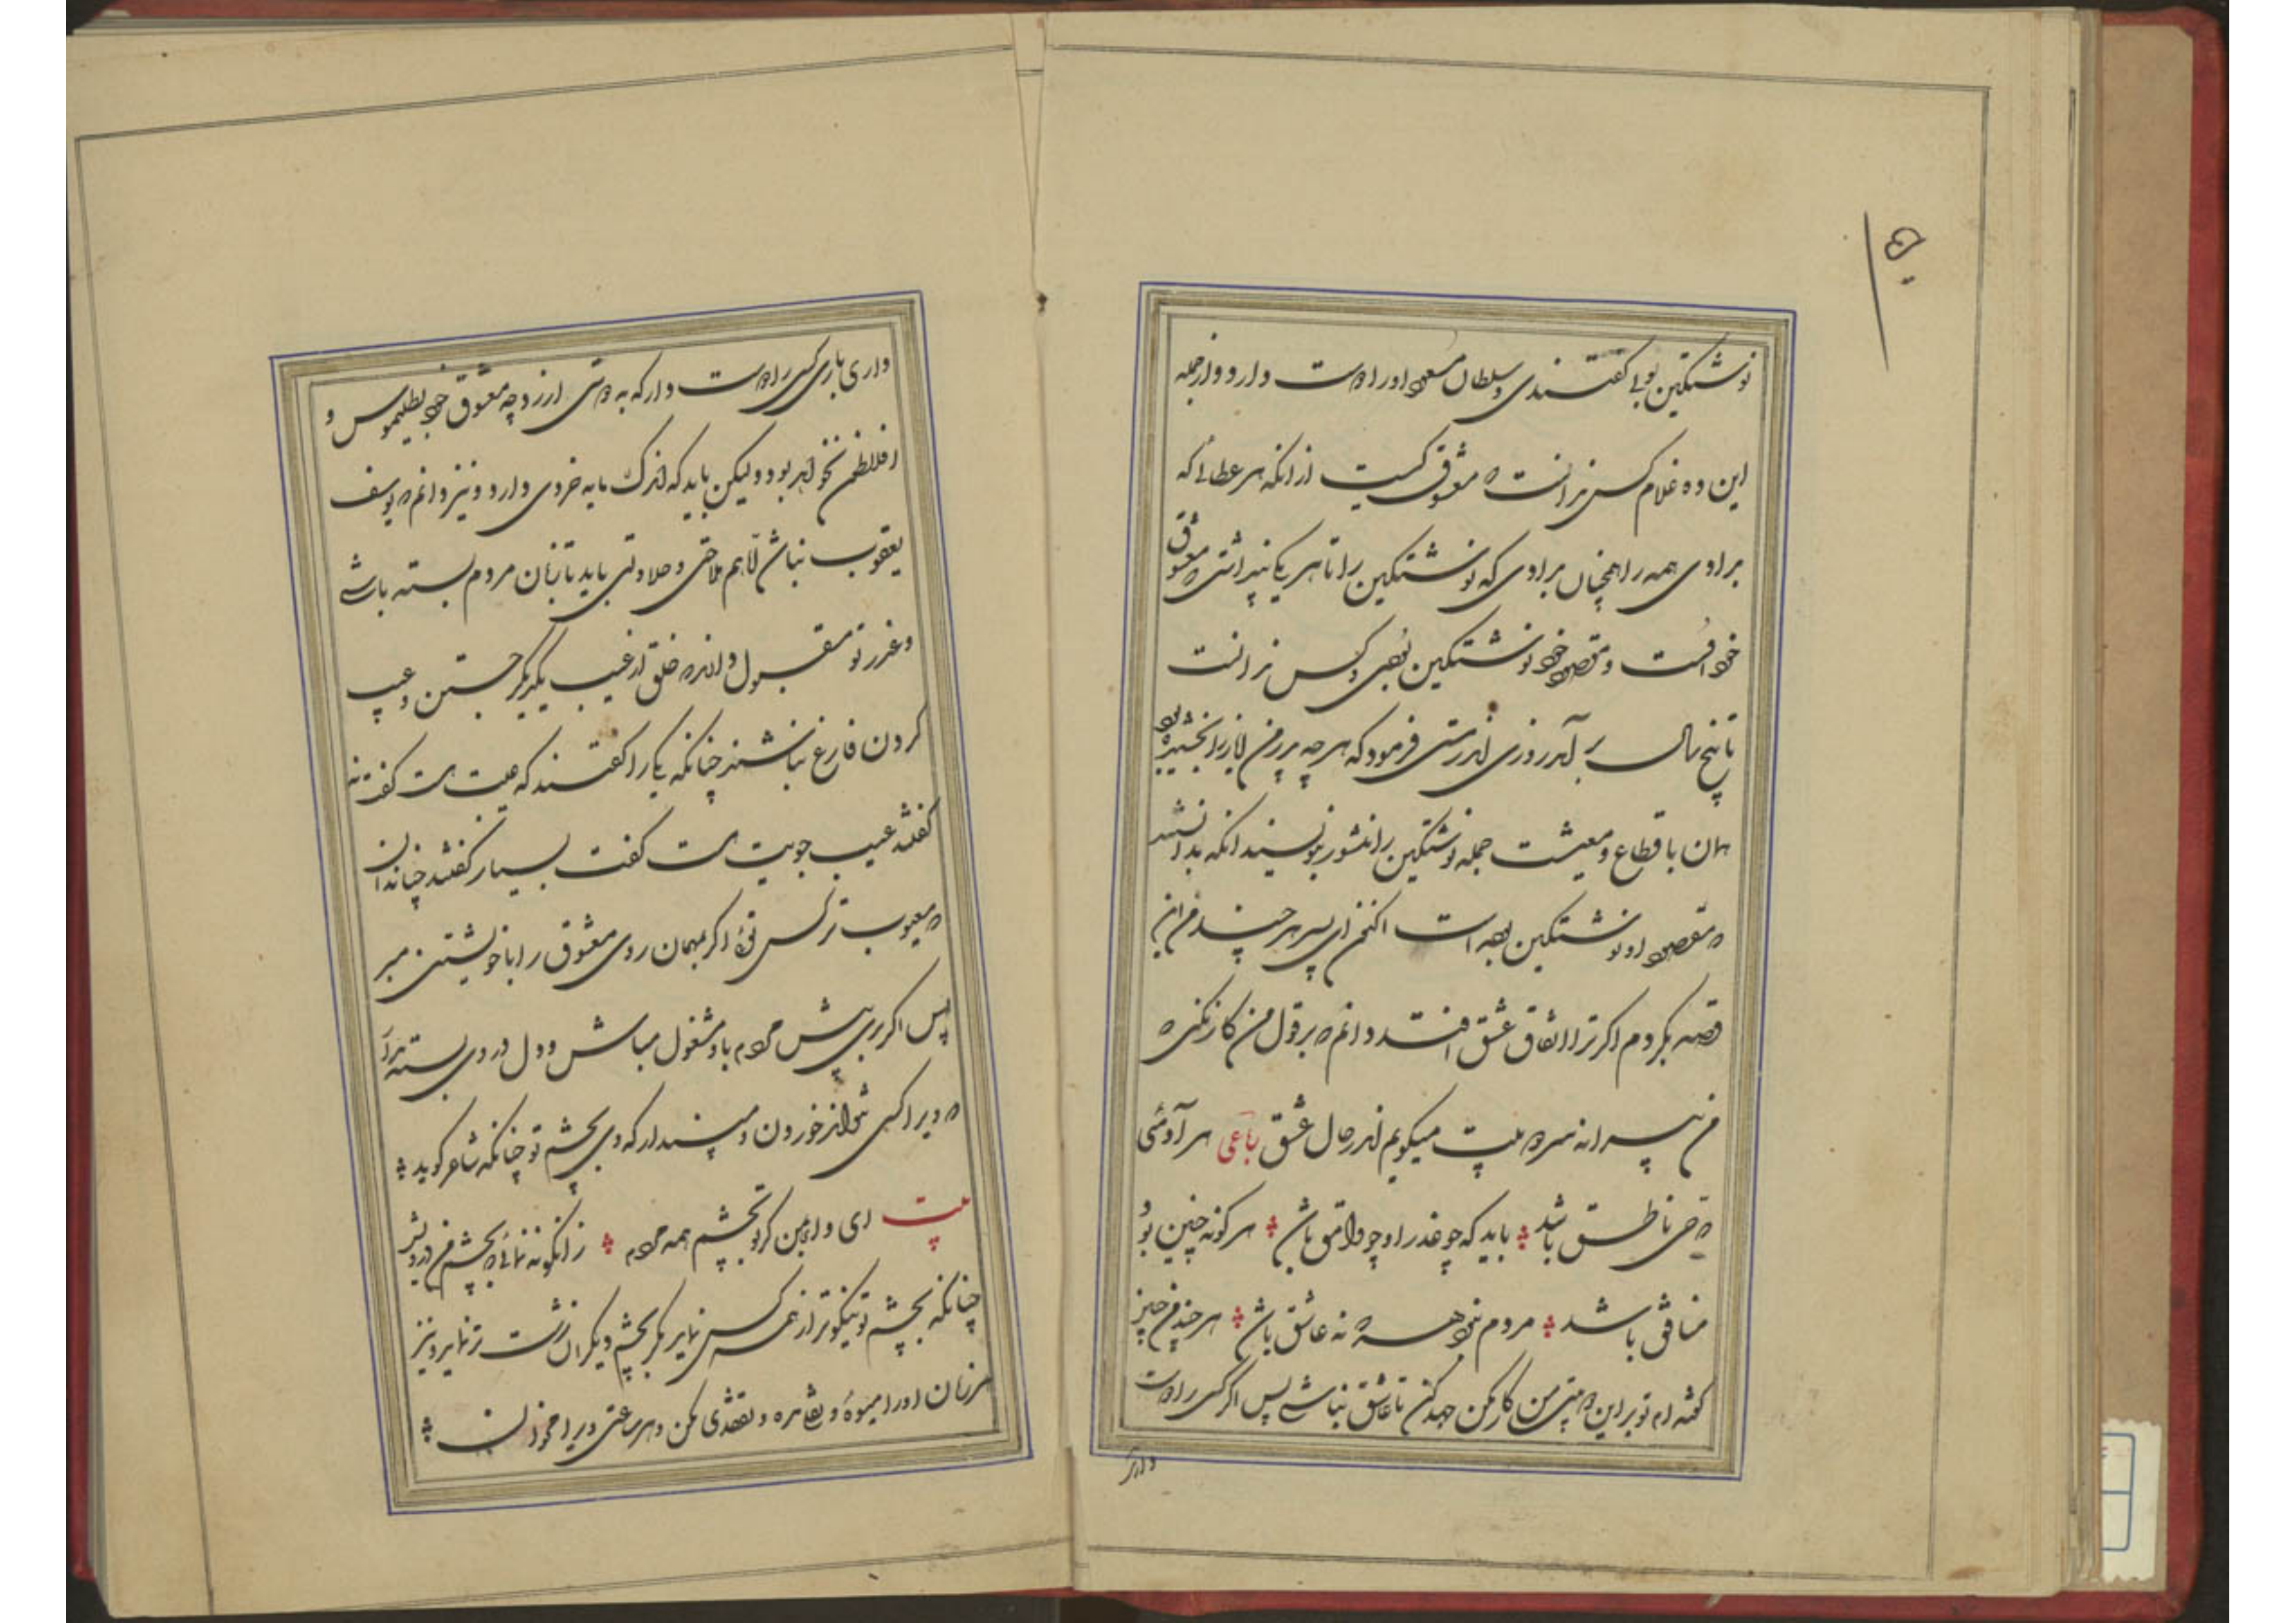 نوشتگین نوبی گفتندی و سلطان مسعود او را دوست دارد و از جمله
این ده غلام کس ندانست که معشوق کیست از انکه هر عطائی که
برادی همه را همچنان برادی که نوشتگین را تا هر یکی پنداشتی که معشوق
خود اوست و مقصود خود نوشتگین بودی و کس ندانست
تا پنج سال بر آمد روزی اندر مستی فرمود که هر چه پدر من ایاز را بخشیده بود
همان باقطاع و معیشت جمله نوشتگین را منشور بنویسند انکه بدانستند
که مقصود او نوشتگین بوده است اکنون ای پسر هر چند من این
قصه بکردم اکر ترا اتفاق عشق افتد دانم که بر قول من کار نکنی که
من پیرانه سر ده بیت میکویم اندر حال عشق رباعی هر آدمئی
که حی ناطق باشد باید که چو عذرا و چو وامق باشد هر کو نه چنین بود
منافق باشد مردم نبود هر که نه عاشق باشد هر چند من چنین
کفته ام تو بر این دو بیتی من کار مکن جهد کن تا عاشق نباشی پس اکر کسی را دوست
داری
داری باری کسی را دوست دار که به دوستی ارزد چه معشوق خود بطلیموس و
افلاطن نخواهد بود و لیکن باید که اندک مایه خردی دارد و نیز دانم که یوسف
یعقوب نباشد الا هم ملاحتی و حلاوتی باید تا زبان مردم بسته باشی
و عذر تو مقبول دارند که خلق از غیب یکدیکر جستن و عیب
کردن فارغ نباشند چنانکه یکی را کفتند که عیبت هست کفت نه
کفتند عیب جویت هست کفت بسیار کفتند چنان دان
که معیوب تر کس توئی اکر بمهمان روی معشوق را با خویشتن مبر
پس اکر بری پیش مردم باو مشغول مباش و دل در وی بسته مدار
که ویرا کسی نتواند خوردن و مپندار که وی بچشم تو چنانکه شاعر کوید
بیت ای وای من کر تو بچشم همه مردم زانکونه نمائی که بچشم من درویش
چنانکه بچشم تو نیکوتر از همه کس نماید مکر بچشم دیکران زشت تر نماید و نیز
هر زمان او را میوهٔ و بقاهره و تفقدی مکن و هر ساعتی ویرا مخوان